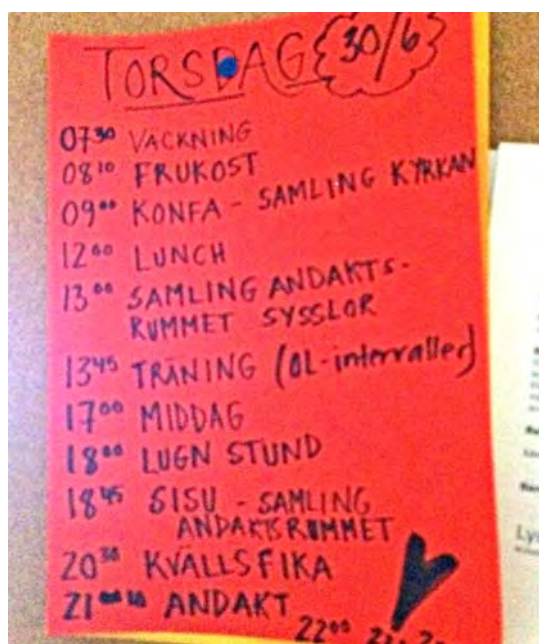 TORSDAG 30/6
07 30 VÄCKNING
08 10 FRUKOST
09 00 KONFA - SAMLING KYRKAN
12 00 LUNCH
13 00 SAMLING ANDAKTS-
RUMMET SYSSLOR
13 45 TRÄNING (OL-intervaller)
17 00 MIDDAG
18 00 LUGN STUND
18 45 SISU - SAMLING
ANDAKTSRUMMET
20 30 KVÄLLSFIKA
21 ANDAKT
22 00